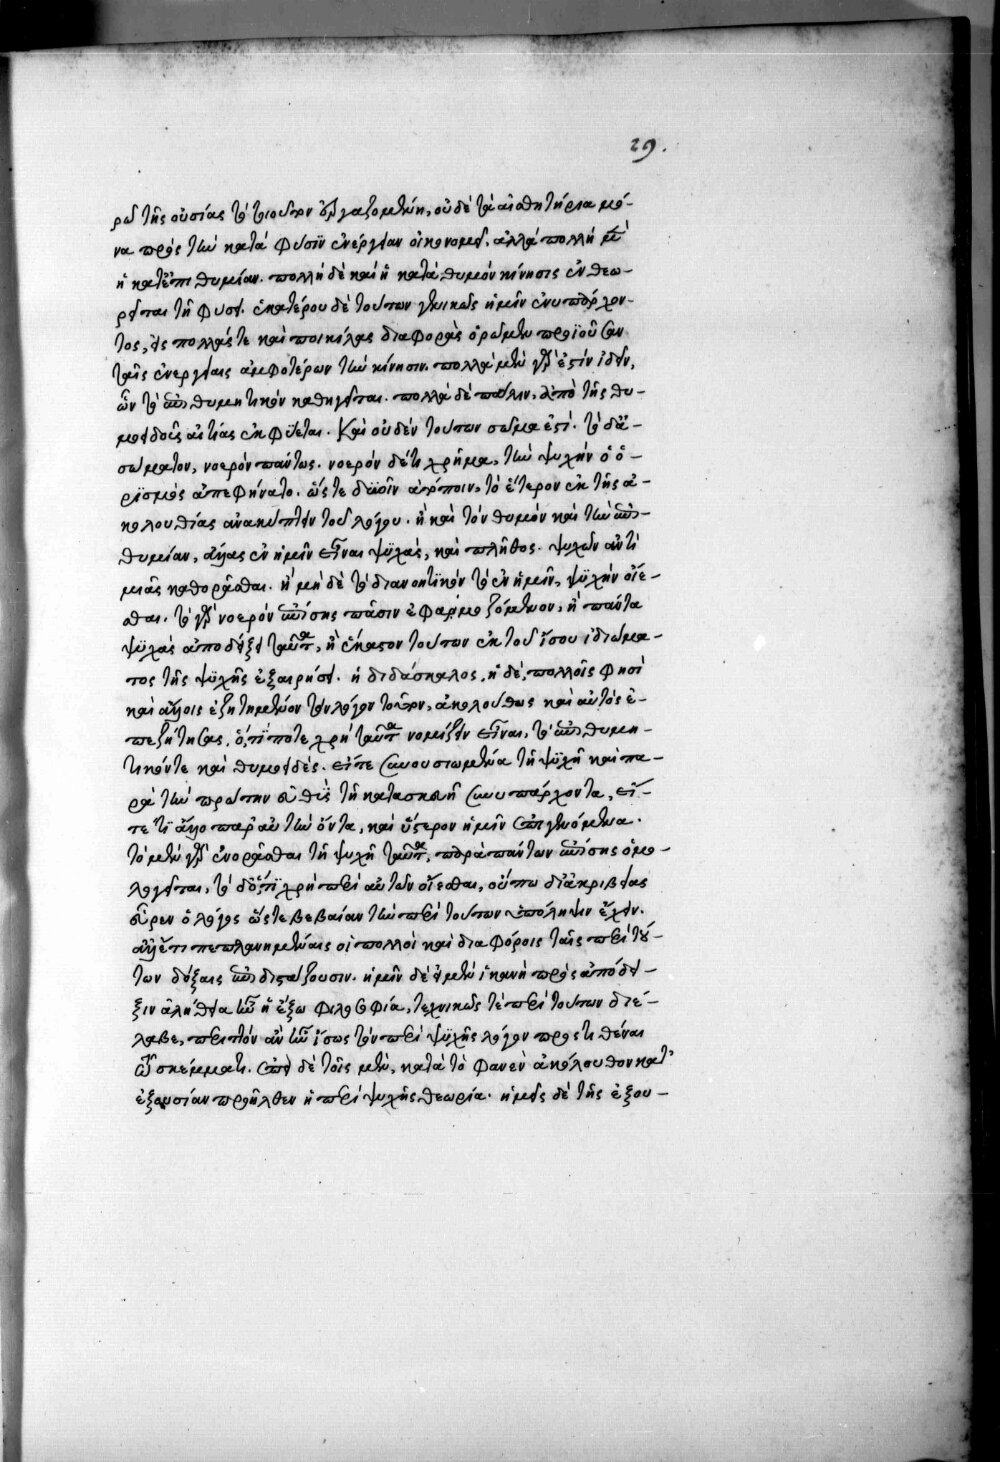 29.
ρω τῆς οὐσίας τὸ τοιοῦτον ἐργαζομένη, οὐδὲ τὰ αἰσθητήρια μό-
να πρὸς τὴν κατὰ φύσιν ἐνέργειαν οἰκονομεῖ. ἀλλὰ πολλὴ μὲν
ἡ κατεπιθυμίαν. πολλὴ δὲ καὶ ἡ κατὰ θυμὸν κίνησις ἐνθεω-
ρεῖται τῇ φύσει. ἑκατέρου δὲ τούτων γενικῶς ἡμῖν ἐνυπάρχον-
τος, εἰς πολλάς τε καὶ ποικίλας διαφορὰς ὁρῶμεν προϊοῦσαν
ταῖς ἐνεργείαις ἀμφοτέρων τὴν κίνησιν. πολλὰ μὲν γάρ ἐστιν ἰδεῖν,
ὧν τὸ ἐπιθυμητικὸν καθηγεῖται. πολλὰ δὲ πάλιν, ἀπὸ τῆς θυ-
μοειδοῦς αἰτίας ἐκφύεται. Καὶ οὐδὲν τούτων σῶμα ἐστί. τὸ δὲ ἀ-
σώματον, νοερὸν πάντως. νοερὸν δέ τι χρῆμα, τὴν ψυχὴν ὁ ὁ-
ρισμὸς ἀπεφήνατο. ὥστε δυοῖν ἀτόποιν, τὸ ἕτερον ἐκ τῆς ἀ-
κολουθίας ἀνακύπτειν τοῦ λόγου. ἢ καὶ τὸν θυμὸν καὶ τὴν ἐπι-
θυμίαν, ἄλλας ἐν ἡμῖν εἶναι ψυχάς, καὶ πλῆθος ψυχῶν ἀντὶ
μιᾶς καθορᾶσθαι. ἢ μὴ δὲ τὸ διανοητικὸν τὸ ἐν ἡμῖν, ψυχὴν οἴε-
σθαι. τὸ γὰρ νοερὸν ἐπίσης πᾶσιν ἐφαρμοζόμενον, ἢ πάντα
ψυχὰς ἀποδείξει ταῦτα, ἢ ἕκαστον τούτων ἐκ τοῦ ἴσου ἰδιώμα-
τος τῆς ψυχῆς ἐξαιρήσει. ἡ διδάσκαλος. ἡ δὲ, πολλοῖς φησὶ
καὶ ἄλλοις ἐζητημένον τὸν λόγον τοῦτον, ἀκολούθως καὶ αὐτὸς ἐ-
πεζήτησας. ὅ,τί ποτε χρὴ ταῦτα νομίζειν εἶναι, τὸ ἐπιθυμη-
τικόν τε καὶ θυμοειδές. εἴτε συνουσιωμένα τῇ ψυχῇ καὶ πα-
ρὰ τὴν πρώτην εὐθὺς τῇ κατασκευῇ συνυπάρχοντα, εἴ-
τε τι ἄλλο παρ' αὐτὴν ὄντα, καὶ ὕστερον ἡμῖν ἐπιγενόμενα.
τὸ μὲν γὰρ ἐνορᾶσθαι τῇ ψυχῇ ταῦτα, παρὰ πάντων ἐπίσης ὁμο-
λογεῖται, τὸ δὲ ὅ,τι χρὴ περὶ αὐτῶν οἴεσθαι, οὔπω δι' ἀκριβείας
εὗρεν ὁ λόγος ὥστε βεβαίαν τὴν περὶ τούτων ὑπόληψιν ἔχειν.
ἀλλ' ἔτι πεπλανημέναις οἱ πολλοὶ καὶ διαφόροις ταῖς περὶ τού-
των δόξαις ἐπιδιστάζουσιν. ἡμῖν δὲ εἰ μὲν ἱκανὴ πρὸς ἀπόδει-
ξιν ἀληθείας ἦν ἡ ἔξω φιλοσοφία, τεχνικῶς τὰ περὶ τούτων διέ-
λαβε, περιττὸν ἂν ἦν ἴσως τὸν περὶ ψυχῆς λόγον προστιθέναι
τῷ σκέμματι. ἐπεὶ δὲ τοῖς μὲν, κατὰ τὸ φανὲν ἀκόλουθον κατ'
ἐξουσίαν προῆλθεν ἡ περὶ ψυχῆς θεωρία. ἡμεῖς δὲ τῆς ἐξου-